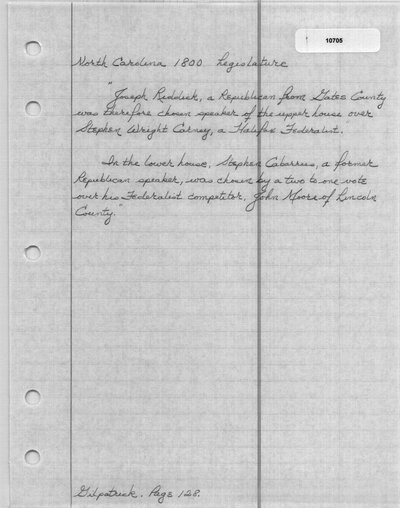 10705
North Carolina 1800 Legislature
"Joseph Riddick, a Republican from Gates County
was therefore chosen speaker of the upper house over
Stephen Wright Carney, a Halifax Federalist.
In the lower house, Stephen Cabarrus, a former
Republican speaker, was chosen by a two to one vote
over his Federalist competitor, John Moore of Lincoln
County."
Gilpatrick. Page 128.